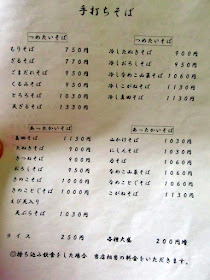 手打ちそば
つめたいそば
もりそば 750円
ざるそば 770円
ごまだれそば 930円
くるみそば 930円
とろろそば 1030円
天ざるそば 1330円
つめたいそば
冷したぬきそば 900円
冷しおろしそば 930円
冷しなめこおろしそば
冷しきのこそば 1060円
冷し
あったかいそば
1130円
たぬきそば 900円
きつねそば
おろしそば 950円
きのこそば 1060円
きのことじそば 1060円
えび天入り
天ぷらそば 1030円
あったかいそば
山かけそば 1030円
にしんそば 1030円
そば 1060円
なめこそば 1060円
なめことじそば 1060円
こがねそば 1130円
ライス 250円
各種大盛 200円増
◎持ち込み飲食をした場合 当店相当の料金をいただきます。